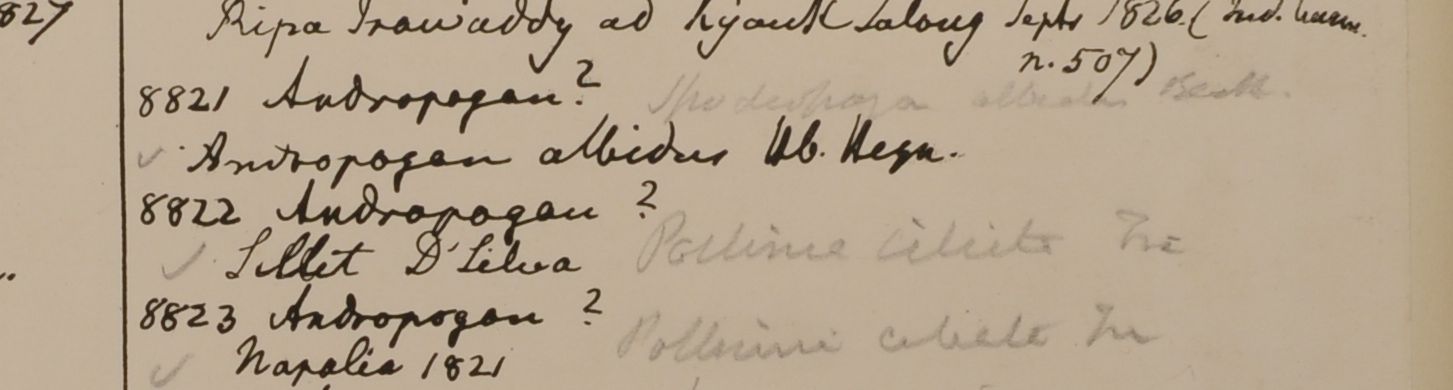 827
Ripa Irawaddy ad Kyouk Talong Septr 1826 (
n. 507)
8821 Andropogon? Spodiopogon albidus Benth.
✓ Andropogon albidus Hb. Heyn.
8822 Andropogon ?
✓ Sillet D'Silva Pollinia ciliata Tri
8823 Andropogon ? Pollinia ciliata Tri
✓ Napalia 1821